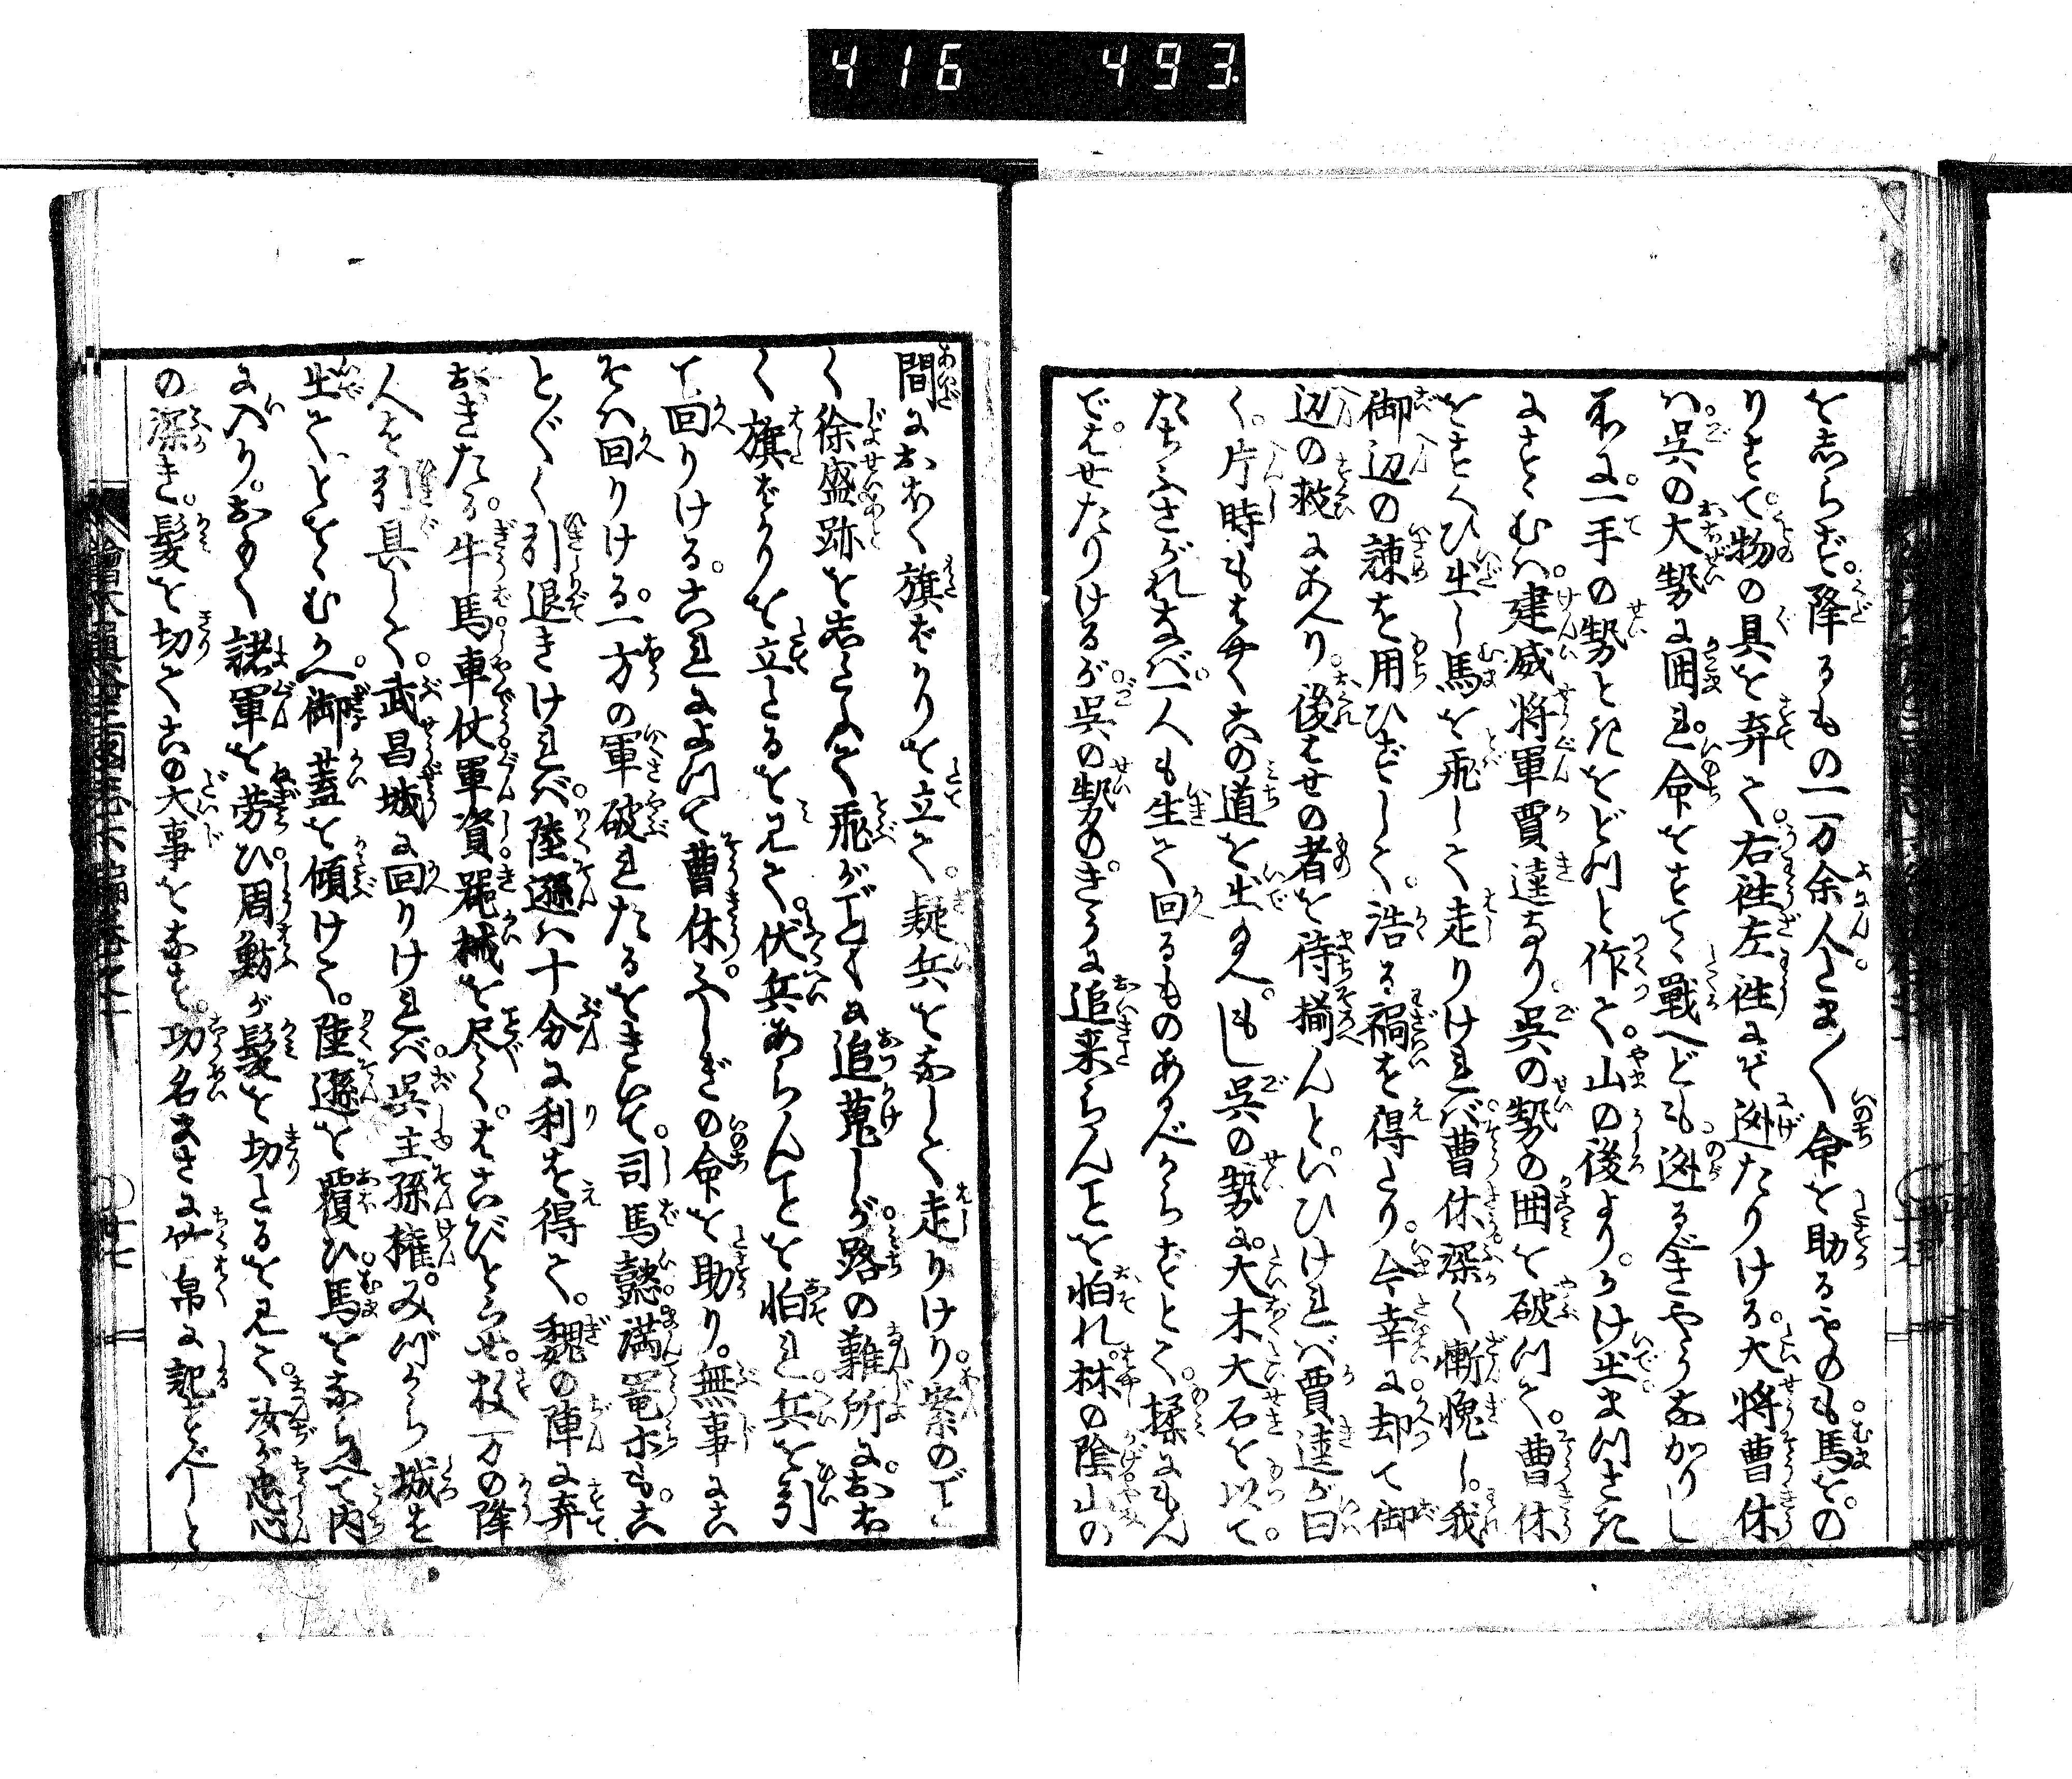 416 493.
を志らず。降るもの一万余人。さまく命を助るものも。馬をの
りすて。物の具を弃て。右往左往にぞ迯たりける。大将曹休
ハ。呉の大勢に囲れ。命をすてて戦へども。迯るべきやうなかりし
処に。一手の勢ときをどつと作て。山の後より。かけ出まつさき
にすゝむハ。建威将軍賈逵なり。呉の勢の囲を破つて。曹休
をすくひ出し馬を飛して走りければ。曹休深く慚愧し。我
御辺の諌を用ひずして。浩る禍を得たり。今幸に却て御
辺の救にあへり。後ばせの者を待揃んといひければ賈逵が曰
く。片時もはやくこの道を出給へ。もし呉の勢に大木大石を以て。
たちふさがれなバ。一人も生て回るものあるべからずとて。揉にもん
ではせたりけるが。呉の勢のきうに追来らんことを怕れ。林の陰山の
間におほく旗ばかりを立て。疑兵をなして走りけり。案のごと
く徐盛跡を志たふて飛がごとくに追蒐しが。路の難所に。おほ
く旗ばかりを立たるを見て。伏兵あらんことを怕れ。兵を引
て回りける。これによつて曹休。ふしぎの命を助り。無事にこ
そハ回りける。一方の軍破れたるをきいて。司馬懿。満寵ホも。こ
とごく引退きければ。陸遜ハ十分に利を得て。魏の陣に弃
おきたる。牛馬。車仗。軍資。器械を尽く。はこびとらせ。数万の降
人を引具して。武昌城に回りければ。呉主孫権。みづから城を
出て。いとをしむかへ。御蓋を傾けて。陸遜を覆ひ。馬をならべて内
に入り。おもく諸軍を労ひ。周魴が髪を切たるを見て。汝が忠心
の深き。髪を切てこの大事をなす。功名まさに竹帛に記すべしと